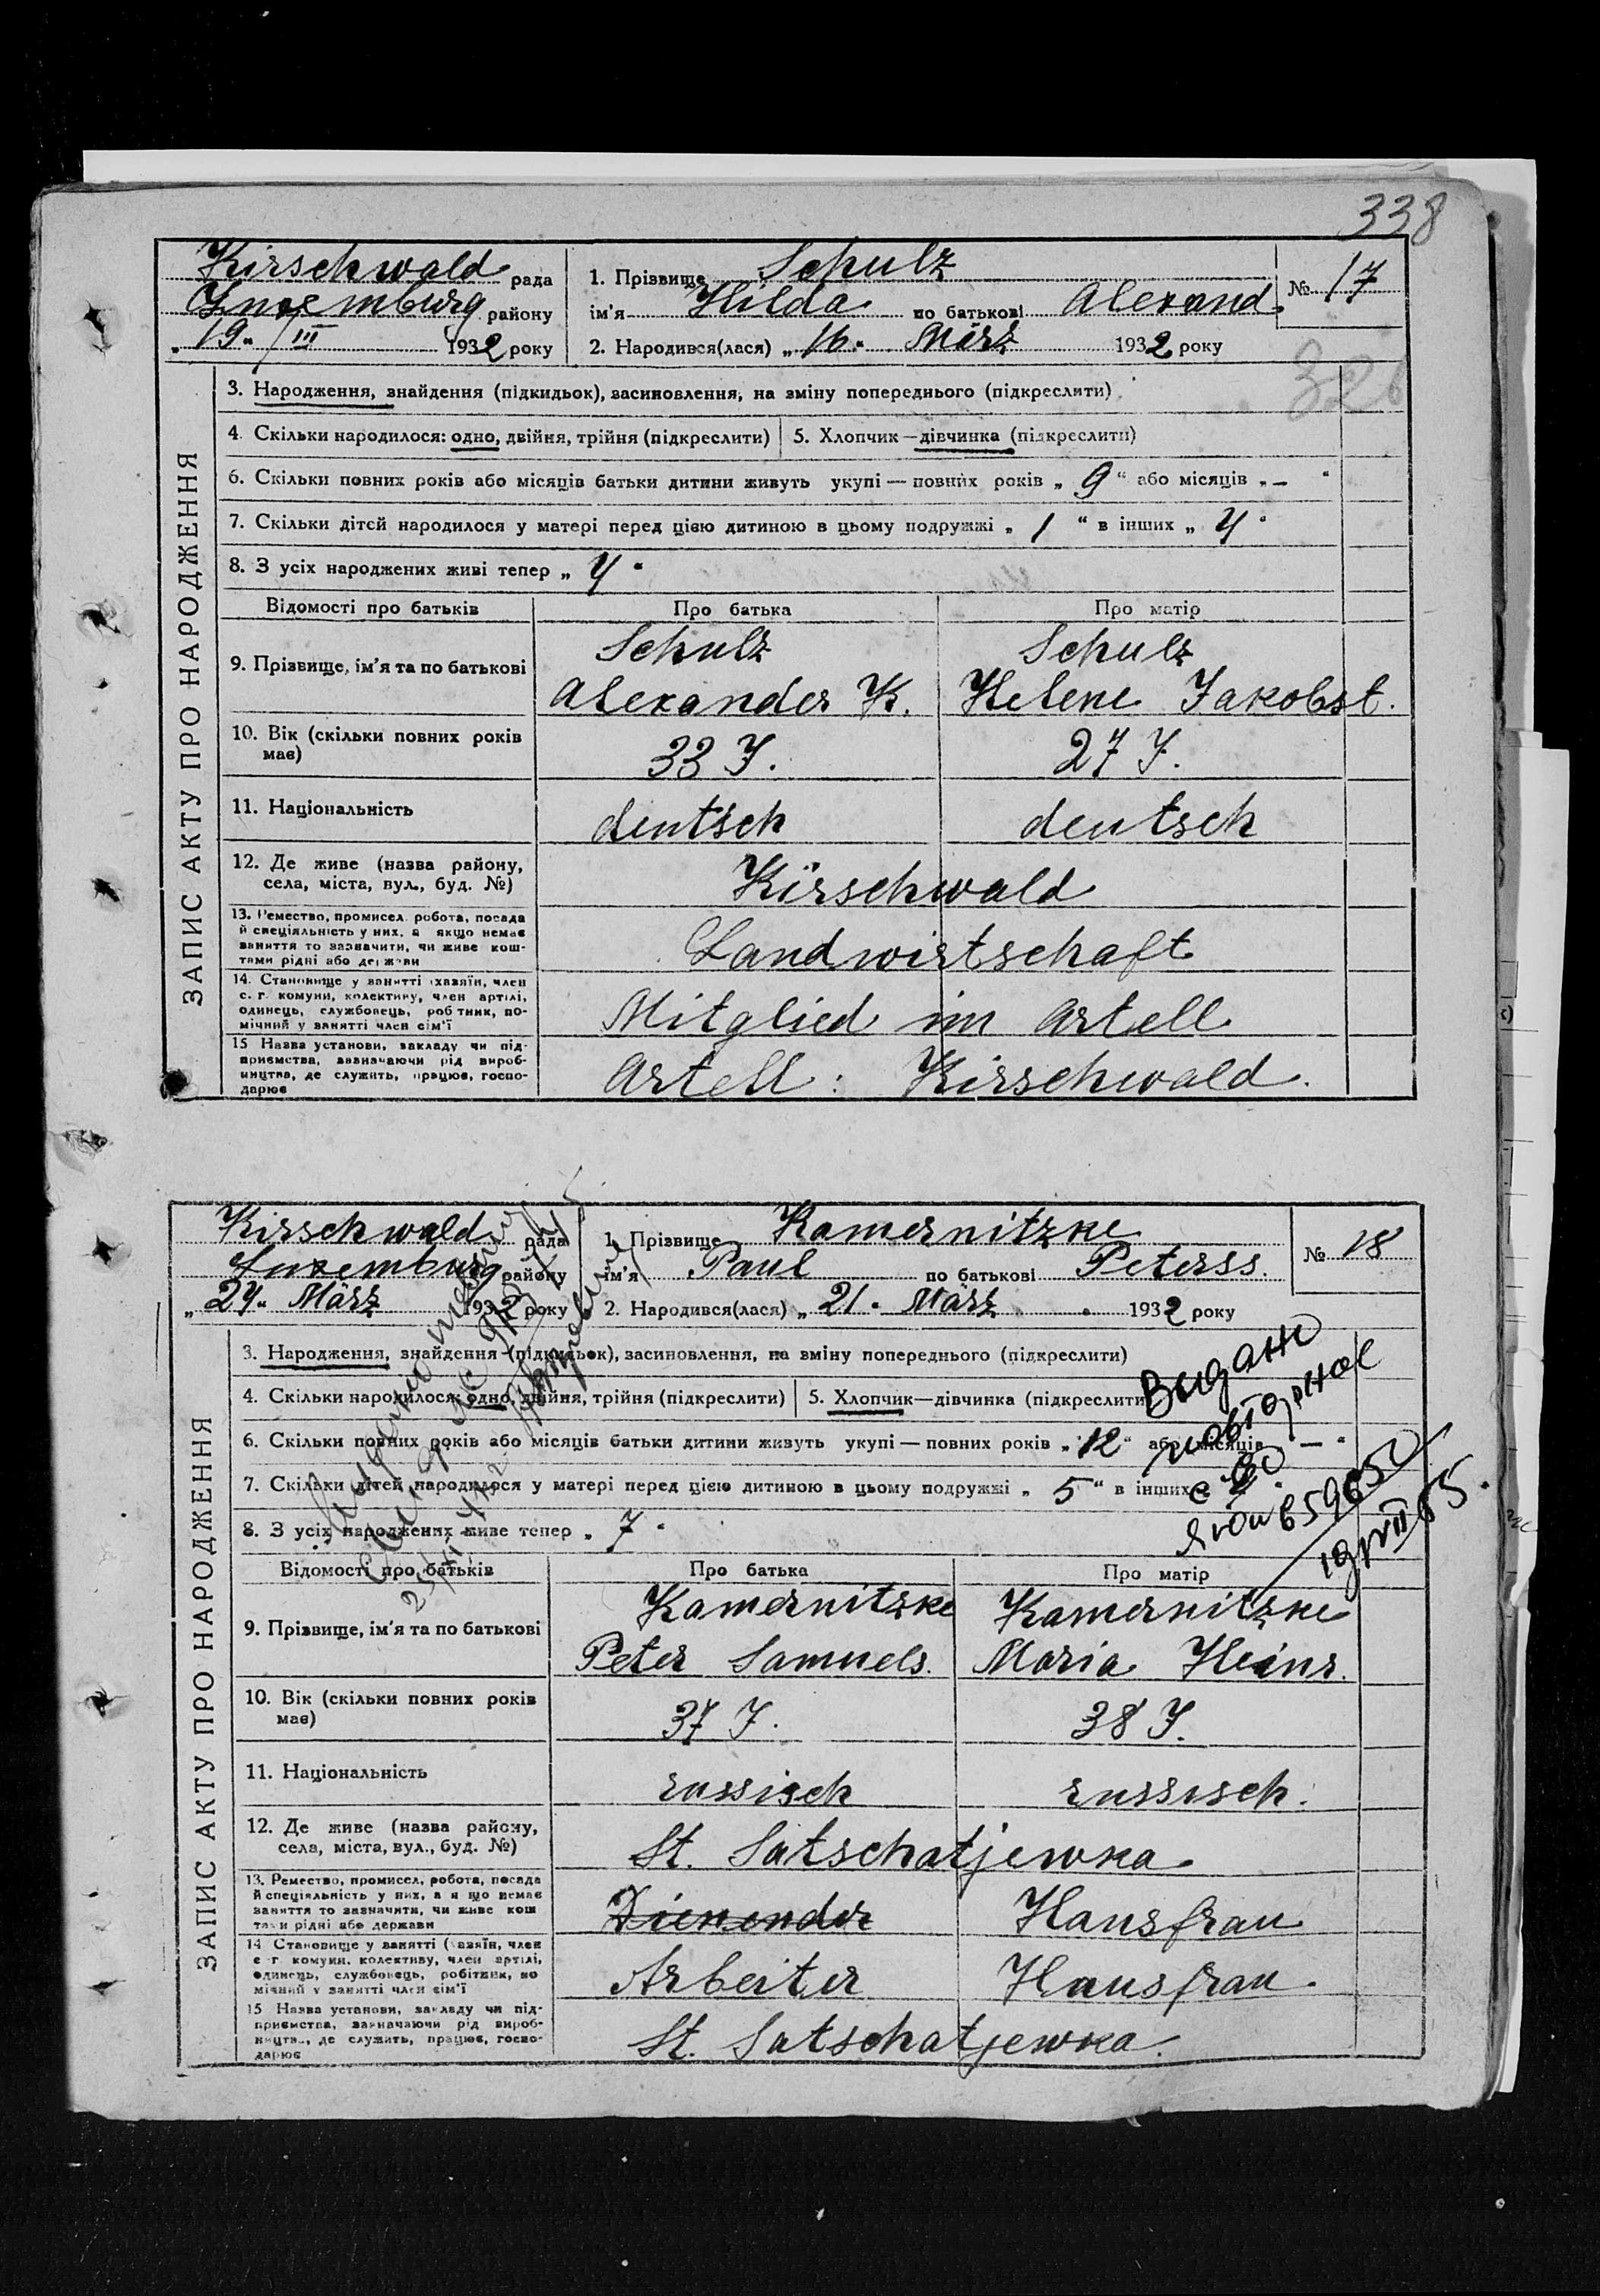 338
Kirschwald рада
Luxemburg району
„19“ III 1932 року
1. Прізвище Schulz
ім'я Hilda по батькові Alexand.
№ 17
2. Народився(лася) „16“ März 1932 року
326
ЗАПИС АКТУ ПРО НАРОДЖЕННЯ
3. Народження, знайдення (підкидьок), засиновлення, на зміну попереднього (підкреслити)
4. Скільки народилося: одно, двійня, трійня (підкреслити) 5. Хлопчик—дівчинка (підкреслити)
6. Скільки повних років або місяців батьки дитини живуть укупі — повних років „ 9 “ або місяців „ – “
7. Скільки дітей народилося у матері перед цією дитиною в цьому подружжі „ 1 “ в інших „ 4 “
8. З усіх народжених живі тепер „ 4 “
Відомості про батьків Про батька Про матір
9. Прізвище, ім'я та по батькові
Schulz Schulz
Alexander K. Helene Jakobst.
10. Вік (скільки повних років має) 33 J. 27 J.
11. Національність deutsch deutsch
12. Де живе (назва району,
села, міста, вул., буд. №)
Kirschwald
13. Ремество, промисел, робота, посада
й спеціяльність у них, а якщо немає
заняття то зазначити, чи живе кош-
тами рідні або держави
Landwirtschaft
14. Становище у занятті (хазяїн, член
с. г. комуни, колективу, член артілі,
одинець, службовець, робітник, по-
мічний у занятті член сім'ї
Mitglied im Artell
15 Назва установи, закладу чи під-
приємства, зазначаючи рід вироб-
ництва, де служить, працює, госпо-
дарює
Artell: Kirschwald.
Kirschwald рада
Luxemburg району
„24“ März 1932 року
1. Прізвище Kamernitzke
ім'я Paul по батькові Peterss.
№ 18
2. Народився(лася) „21“ März 1932 року
ЗАПИС АКТУ ПРО НАРОДЖЕННЯ
3. Народження, знайдення (підкидьок), засиновлення, на зміну попереднього (підкреслити)
4. Скільки народилося: одно, двійня, трійня (підкреслити) 5. Хлопчик—дівчинка (підкреслити)
6. Скільки повних років або місяців батьки дитини живуть укупі — повних років „ 12 “ або місяців „ – “
7. Скільки дітей народилося у матері перед цією дитиною в цьому подружжі „ 5 “ в інших
8. З усіх народжених живе тепер „ 7 “
Видано
повторное
659650
19/VII 65
Відомості про батьків Про батька Про матір
9. Прізвище, ім'я та по батькові
Kamernitzke Kamernitzke
Peter Samuels. Maria Heinr.
10. Вік (скільки повних років має) 37 J. 38 J.
11. Національність russisch russisch.
12. Де живе (назва району,
села, міста, вул., буд. №)
St. Satschatjewka
13. Ремество, промисел, робота, посада
й спеціяльність у них, а якщо немає
заняття то зазначити, чи живе кош
тами рідні або держави
Dienender Hausfrau
14 Становище у занятті (хазяїн, член
с г. комуни, колективу, член артілі,
одинець, службовець, робітник, по
мічний у занятті член сім'ї
Arbeiter Hausfrau.
15 Назва установи, закладу чи під-
приємства, зазначаючи рід вироб-
ництва, де служить, працює, госпо-
дарює
St. Satschatjewka.